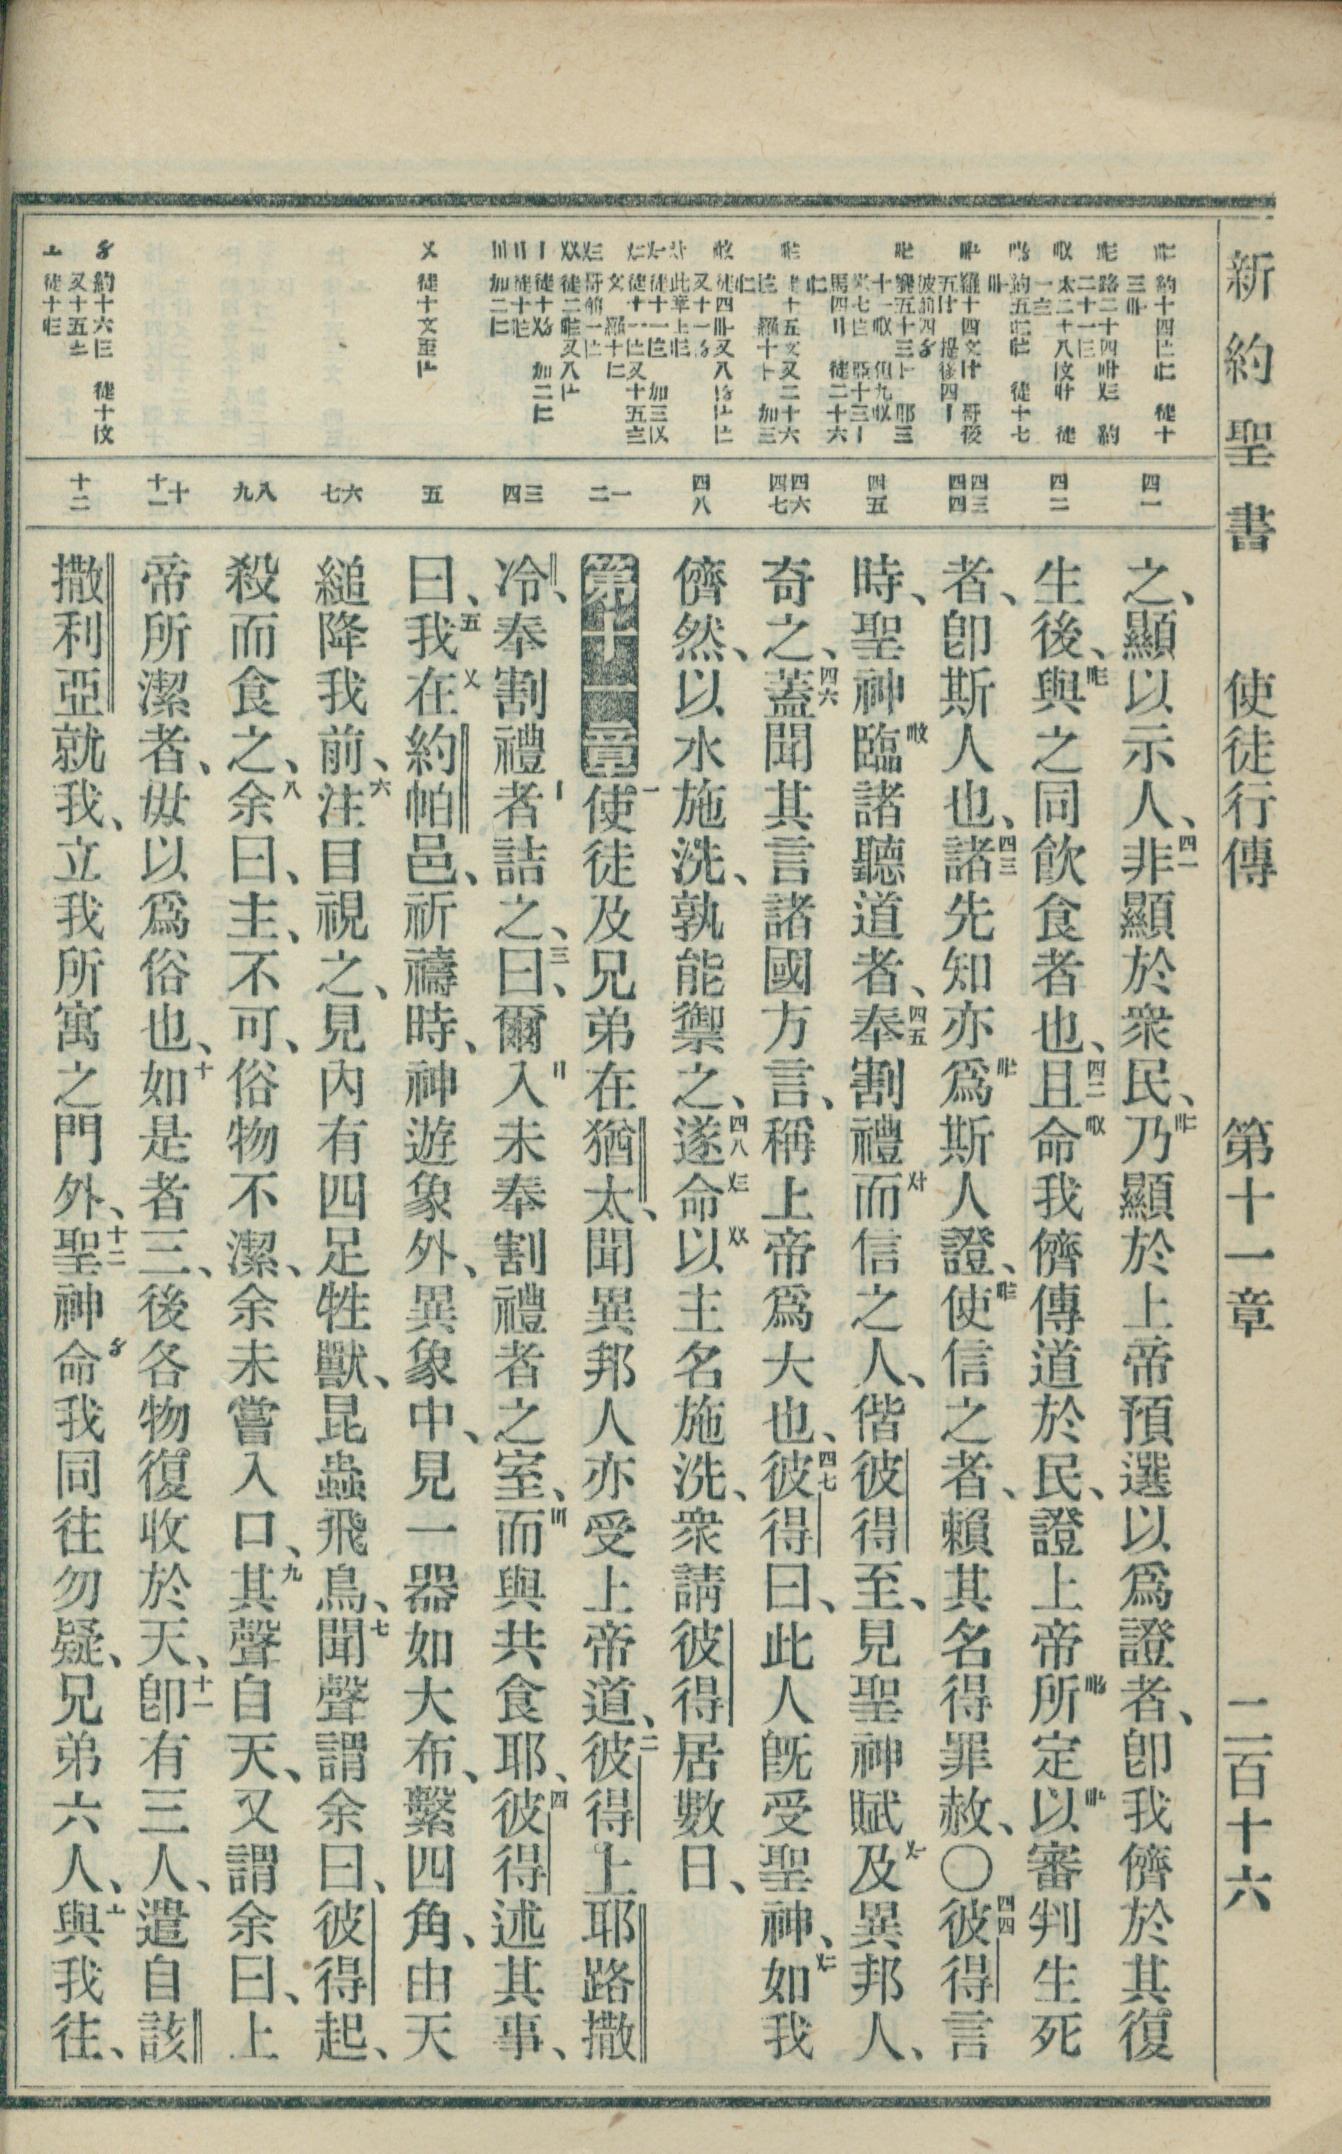 新約聖書　使徒行傳　第十一章　二百十六
之、顯以示人、四一非顯於衆民、乃顯於上帝預選以爲證者、卽我儕於其復
生後、與之同飮食者也、四二且命我儕傳道於民、證上帝所定以審判生死
者、卽斯人也、四三諸先知亦爲斯人證、使信之者、賴其名得罪赦、〇四四彼得言
時、聖神臨諸聽道者、四五奉割禮而信之人、偕彼得至、見聖神賦及異邦人、
奇之、四六蓋聞其言諸國方言、稱上帝爲大也、四七彼得曰、此人旣受聖神、如我
儕然、以水施洗、孰能禦之、四八遂命以主名施洗、衆請彼得居數日、
第十一章一使徒及兄弟在猶太、聞異邦人亦受上帝道、二彼得上耶路撒
冷、奉割禮者詰之、三曰、爾入未奉割禮者之室、而與共食耶、四彼得述其事、
曰、五我在約帕邑、祈禱時、神遊象外、異象中、見一器如大布、繫四角、由天
縋降我前、六注目視之、見內有四足牲獸、昆蟲飛鳥、七聞聲謂余曰、彼得起、
殺而食之、八余曰、主、不可、俗物不潔、余未嘗入口、九其聲自天、又謂余曰、上
帝所潔者、毋以爲俗也、十如是者三、後各物復收於天、十一卽有三人、遣自該
撒利亞就我、立我所寓之門外、十二聖神命我同往勿疑、兄弟六人、與我往、
四一
四二
四三
四四
四五
四六
四七
四八
一
二
三
四
五
六
七
八
九
十
十一
十二